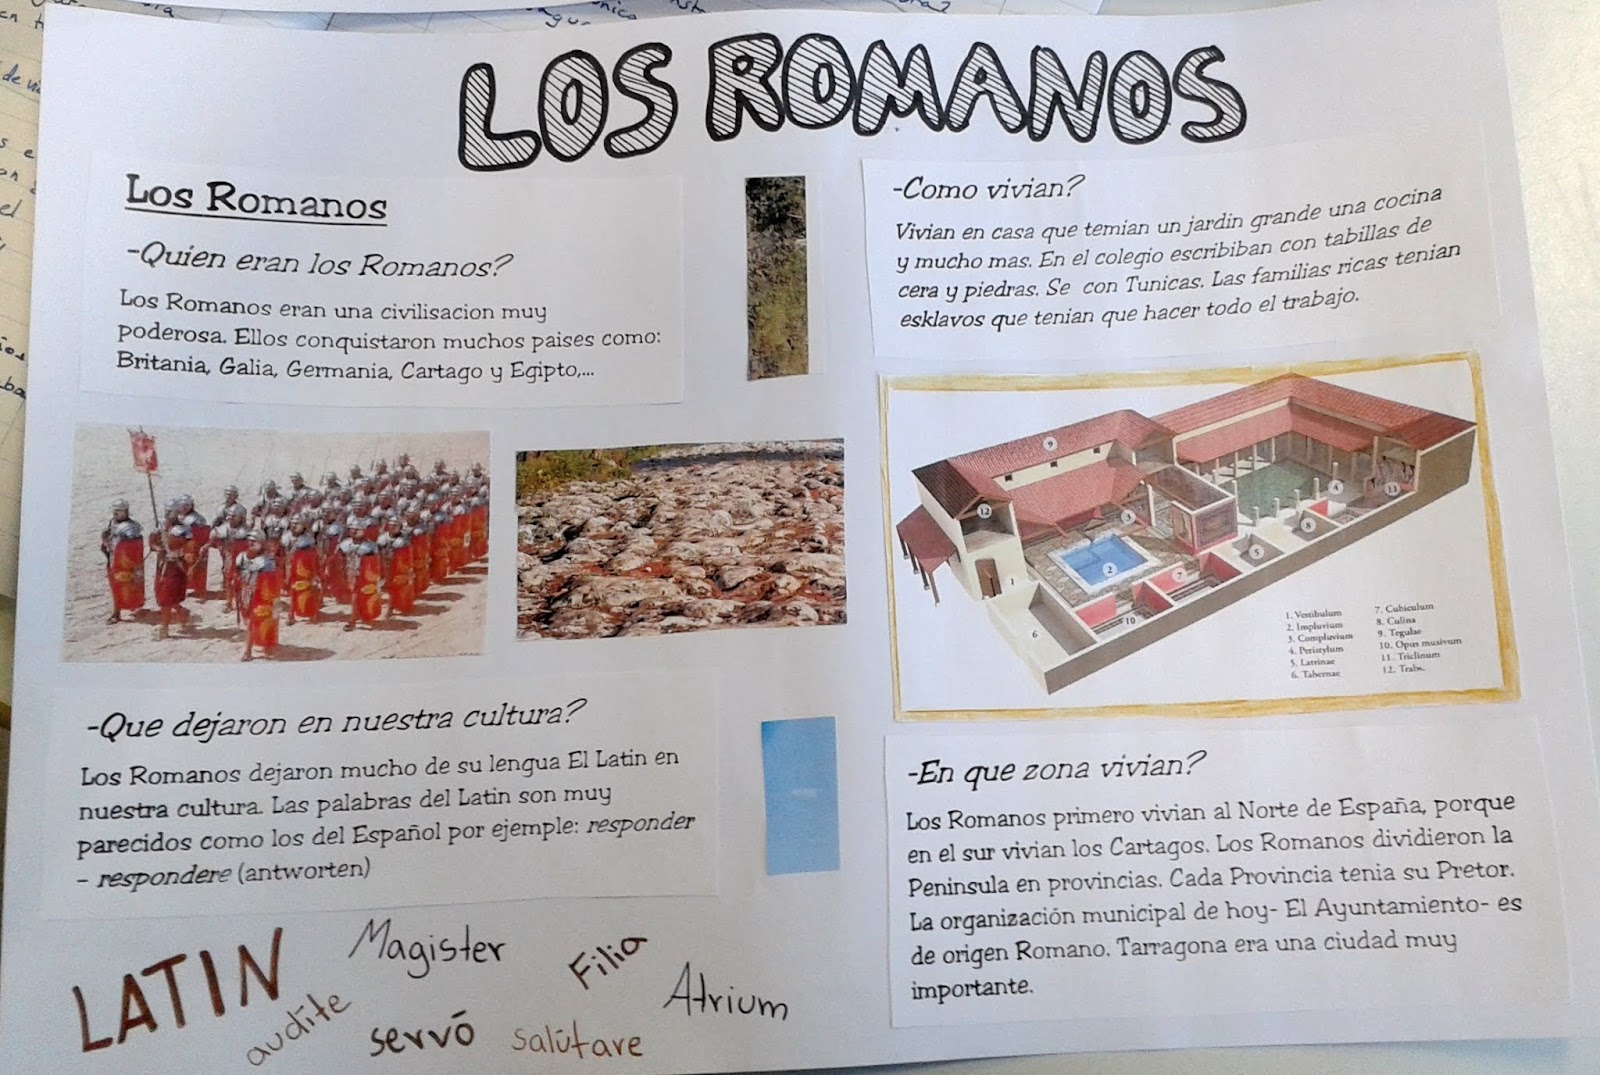 LOS ROMANOS
Los Romanos
-Quien eran los Romanos?
Los Romanos eran una civilisacion muy
poderosa. Ellos conquistaron muchos paises como:
Britania, Galia, Germania, Cartago y Egipto,...
-Que dejaron en nuestra cultura?
Los Romanos dejaron mucho de su lengua El Latin en
nuestra cultura. Las palabras del Latin son muy
parecidos como los del Español por ejemple: responder
- respondere (antworten)
LATIN
audíte
Magister
servó
Filia
salútare
Atrium
-Como vivian?
Vivian en casa que temian un jardin grande una cocina
y mucho mas. En el colegio escribiban con tabillas de
cera y piedras. Se con Tunicas. Las familias ricas tenian
esklavos que tenian que hacer todo el trabajo.
9
12
3
4
11
8
5
2
7
1
10
6
1. Vestibulum
2. Impluvium
3. Compluvium
4. Peristylum
5. Latrinae
6. Tabernae
7. Cubiculum
8. Culina
9. Tegulae
10. Opus musivum
11. Triclinum
12. Trabs.
-En que zona vivian?
Los Romanos primero vivian al Norte de España, porque
en el sur vivian los Cartagos. Los Romanos dividieron la
Peninsula en provincias. Cada Provincia tenia su Pretor.
La organización municipal de hoy- El Ayuntamiento- es
de origen Romano. Tarragona era una ciudad muy
importante.